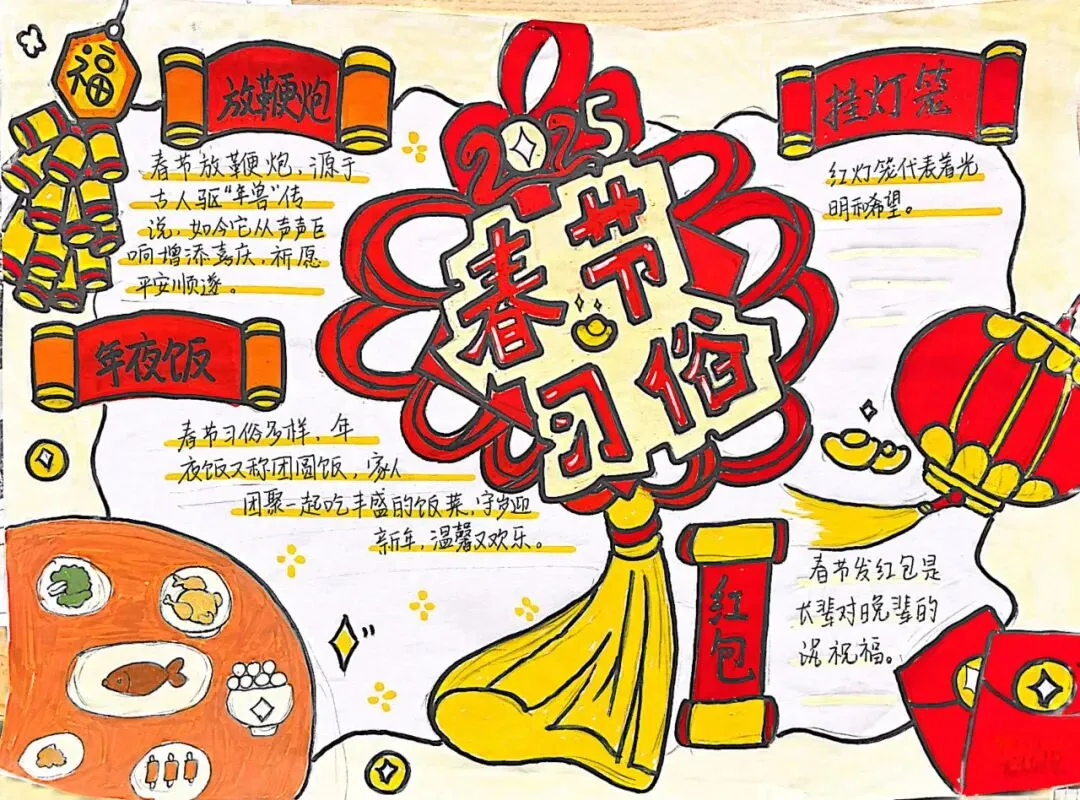 福
放鞭炮
春节放鞭炮，源于
古人驱“年兽”传
说，如今它从声声巨
响增添喜庆，祈愿
平安顺遂。
年夜饭
春节习俗多样，年
夜饭又称团圆饭，家人
团聚一起吃丰盛的饭菜，守岁迎
新年，温馨又欢乐。
2025
春节
习俗
挂灯笼
红灯笼代表着光
明和希望。
红包
春节发红包是
长辈对晚辈的
祝福。